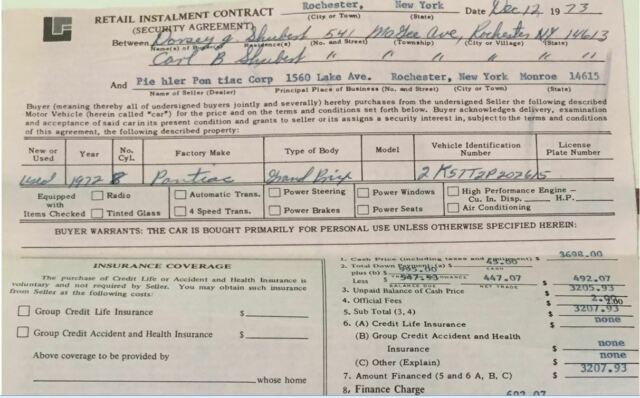 RETAIL INSTALMENT CONTRACT Rochester, New York Date Dec 12 1973
(SECURITY AGREEMENT) (City or Town) (State)
Between Dorsey G Shubert 541 McGee Ave, Rochester NY 14613
Name(s) of Buyer(s) Residence(s) (No. and Street) (Township) (City or Village) (State)
Carl B Shubert " " " " "
And Pie hler Pon tiac Corp 1560 Lake Ave. Rochester, New York Monroe 14615
Name of Seller (Dealer) Principal Place of Business (No. and Street) (City or Town) (State)
Buyer (meaning thereby all of undersigned buyers jointly and severally) hereby purchases from the undersigned Seller the following described
Motor Vehicle (herein called "car") for the price and on the terms and conditions set forth below. Buyer acknowledges delivery, examination
and acceptance of said car in its present condition and grants to seller or its assigns a security interest in, subject to the terms and conditions
of this agreement, the following described property:
New or Used Year No. Cyl. Factory Make Type of Body Model Vehicle Identification Number License Plate Number
Used 1972 8 Pontiac Grand Prix
Equipped with Items Checked
Radio Automatic Trans. Power Steering Power Windows High Performance Engine –
Cu. In. Disp. H.P.
Tinted Glass 4 Speed Trans. Power Brakes Power Seats Air Conditioning
BUYER WARRANTS: THE CAR IS BOUGHT PRIMARILY FOR PERSONAL USE UNLESS OTHERWISE SPECIFIED HEREIN:
INSURANCE COVERAGE
The purchase of Credit Life or Accident and Health Insurance is
voluntary and not required by Seller. You may obtain such insurance
from Seller at the following costs:
Group Credit Life Insurance $
Group Credit Accident and Health Insurance $
Above coverage to be provided by
whose home
1. Cash Price (including taxes and $ 3698.00
2. Total Down Payment (a) $ 45.00
CASH
plus (b) $ 995.00
Less $ 547.93 447.07 $ 492.07
BALANCE DUE NET TRADE
3. Unpaid Balance of Cash Price $ 3205.93
4. Official Fees $ 2.00
5. Sub Total (3, 4) $ 3207.93
6. (A) Credit Life Insurance $ none
(B) Group Credit Accident and Health
Insurance $ none
(C) Other (Explain) $ none
7. Amount Financed (5 and 6 A, B, C) $ 3207.93
8. Finance Charge